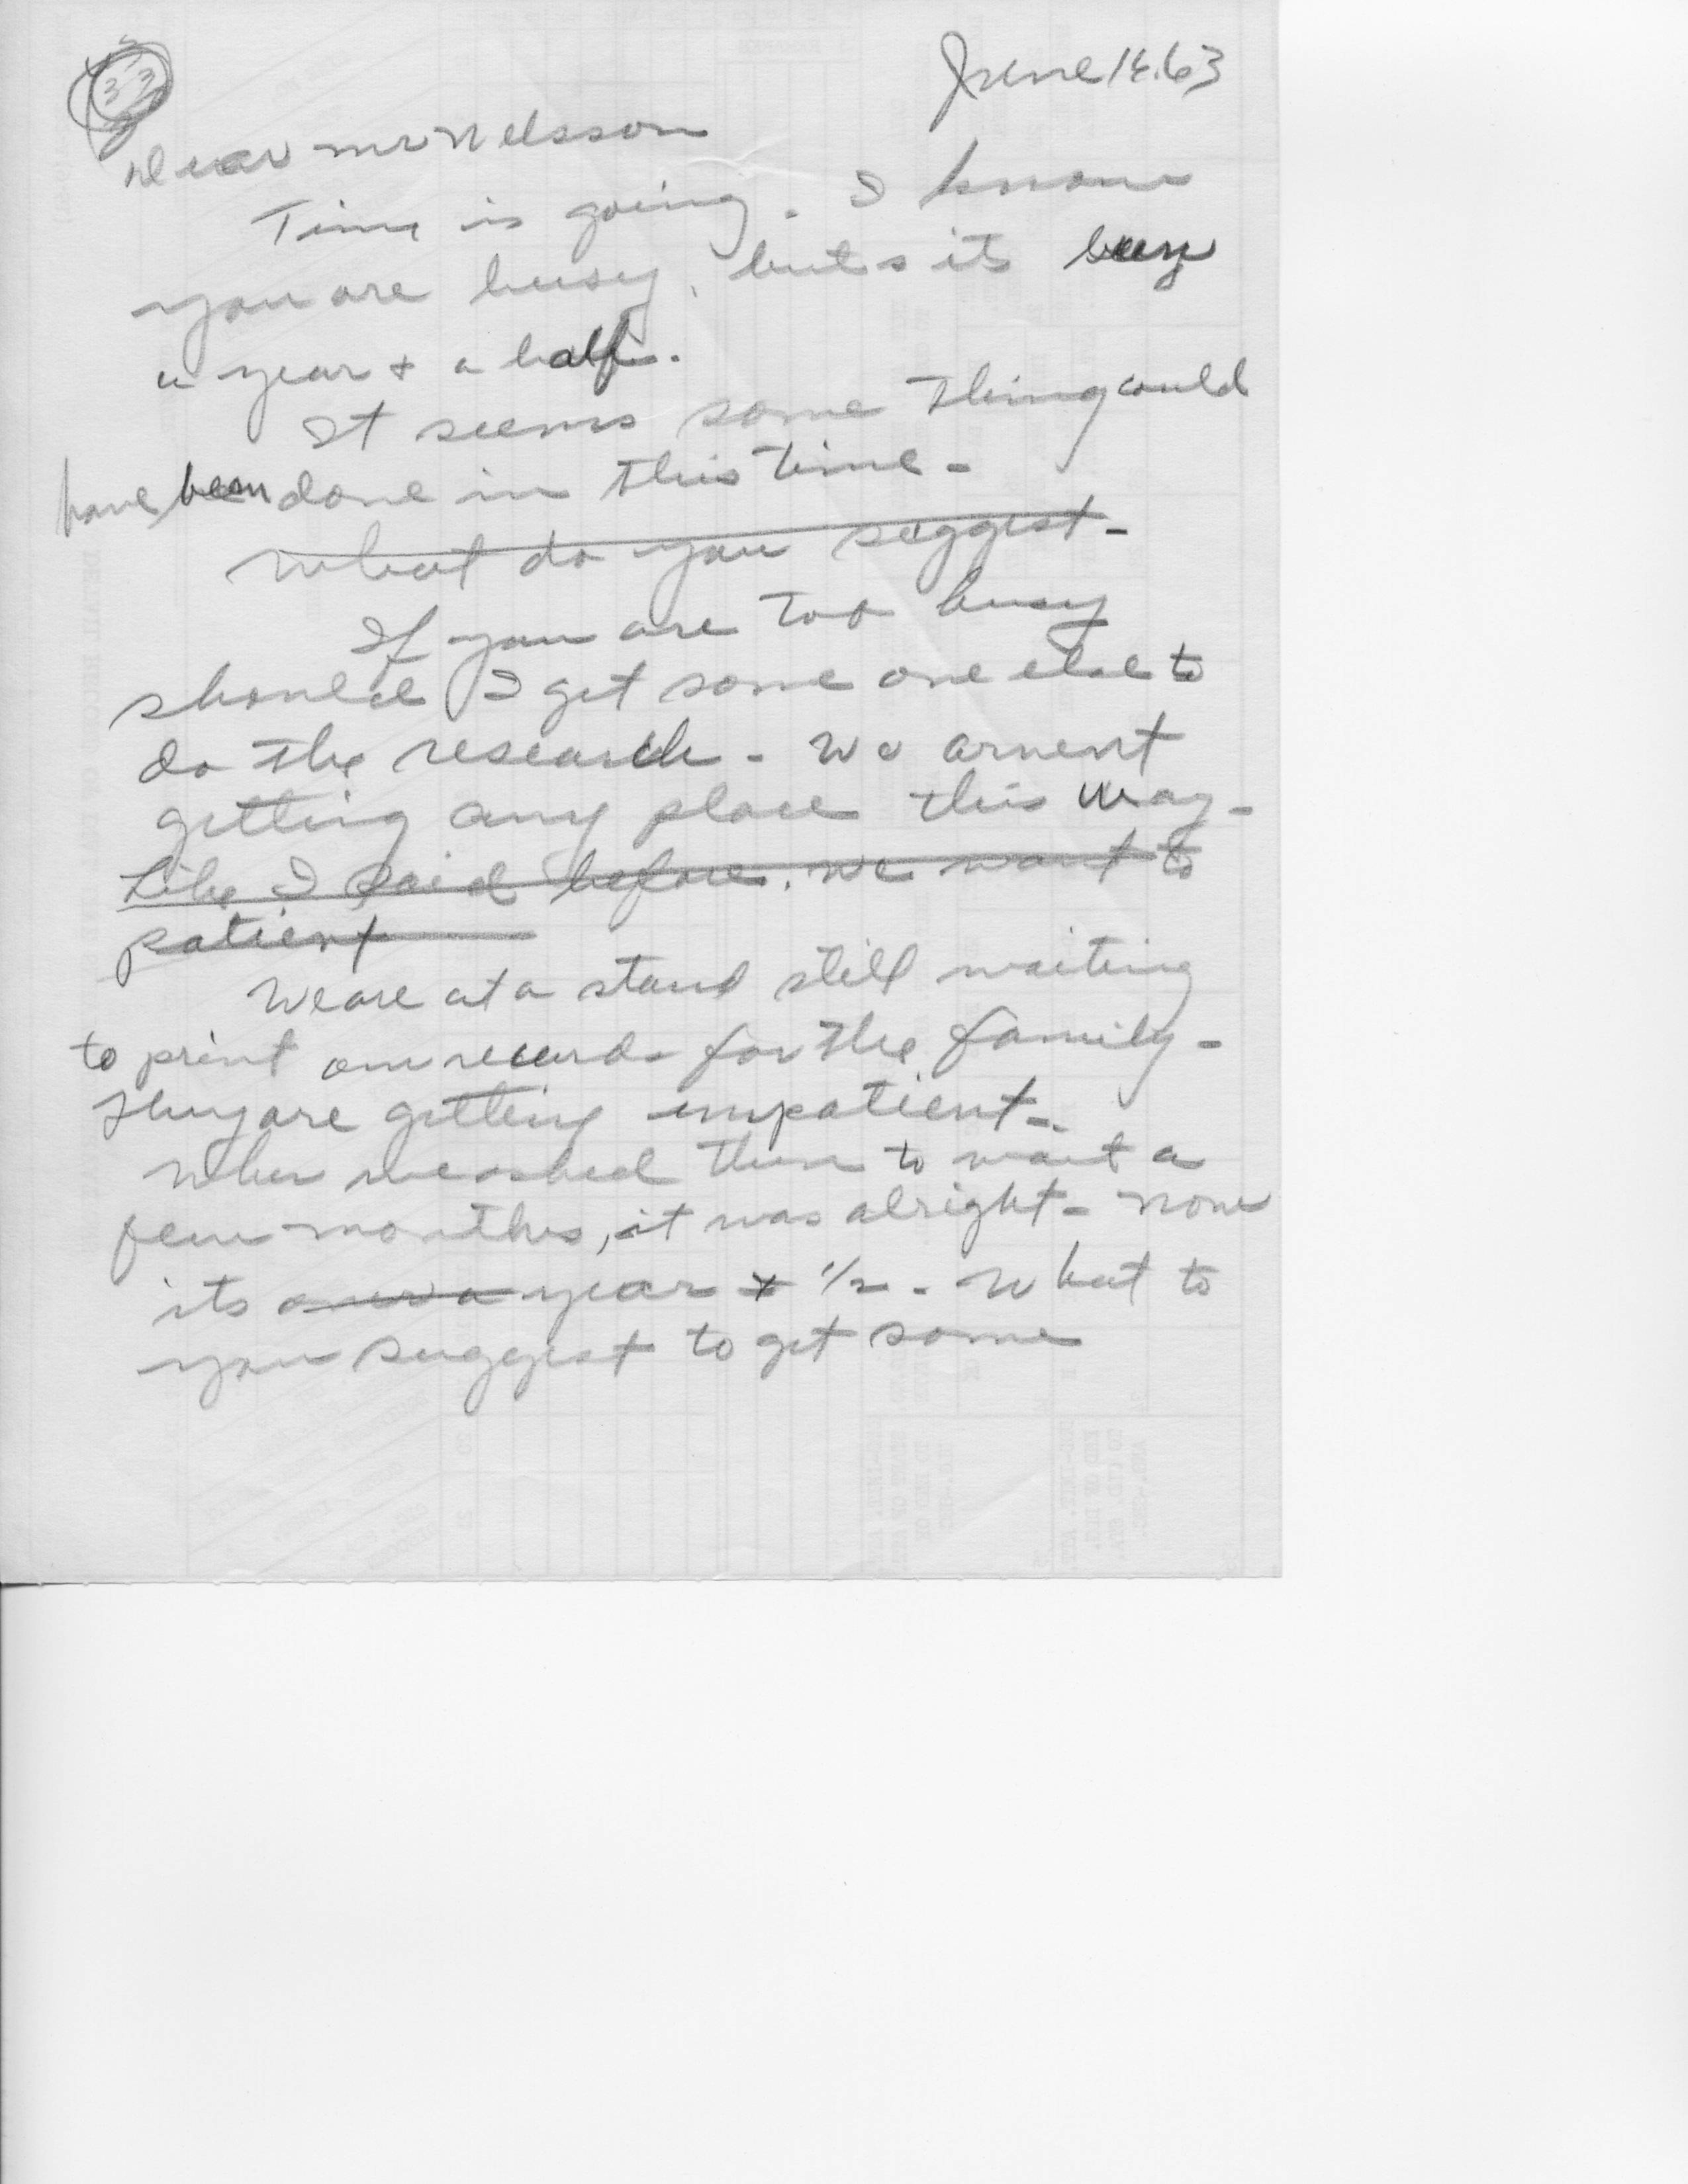 33
June 14.63
Dear Mr Nelsson
Time is going. I know
you are busy, but s its been
a year + a half.
It seems some thing could
have been done in this time -
What do you suggest -
If you are too busy
should I get some one else to
do the research - We arnent
getting any place this way -
Like I said before. we want to
patient
We are at a stand still waiting
to print our records for the family -
They are getting impatient -
When we asked them to wait a
few months, it was alright - now
its over a year + 1/2 - What to
you suggest to get some